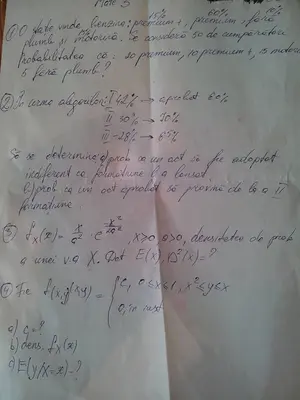 15% 60% 10%
① O stație vinde benzină: premium+, premium, fără
plumb și motorină. Se consideră 50 de cumpărători
Probabilitatea ca: 20 premium, 10 premium+, 15 motorină
5 fără plumb?
② În urma alegerilor: I 42% → aprobat 80%
II 30% → 70%
III → 28% → 65%
Să se determine a) prob ca un act să fie adoptat
indiferent ce formațiune l-a lansat.
b) prob ca un act aprobat să provină de la a II
formațiune.
③ fx(x) = x/a² · e^(-x²/2a²), x>0, a>0, densitatea de prob
a unei v.a X. Det E(x), D²(x) = ?
④ Fie f(x,y) = { c, 0≤x≤1, x²≤y≤x
0, în rest
a) c = ?
b) dens. fx(x)
c) E(Y/X=x) = ?